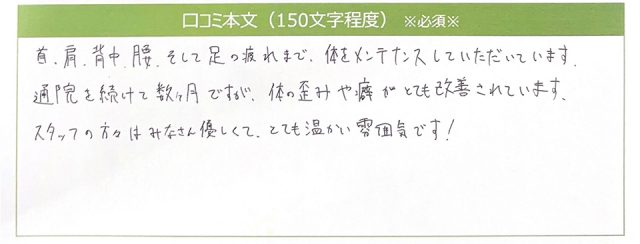 口コミ本文（150文字程度）※必須※
首、肩、背中、腰、そして足の疲れまで、体をメンテナンスしていただいています。
通院を続けて数ヶ月ですが、体の歪みや癖がとても改善されています。
スタッフの方々はみなさん優しくて、とても温かい雰囲気です！